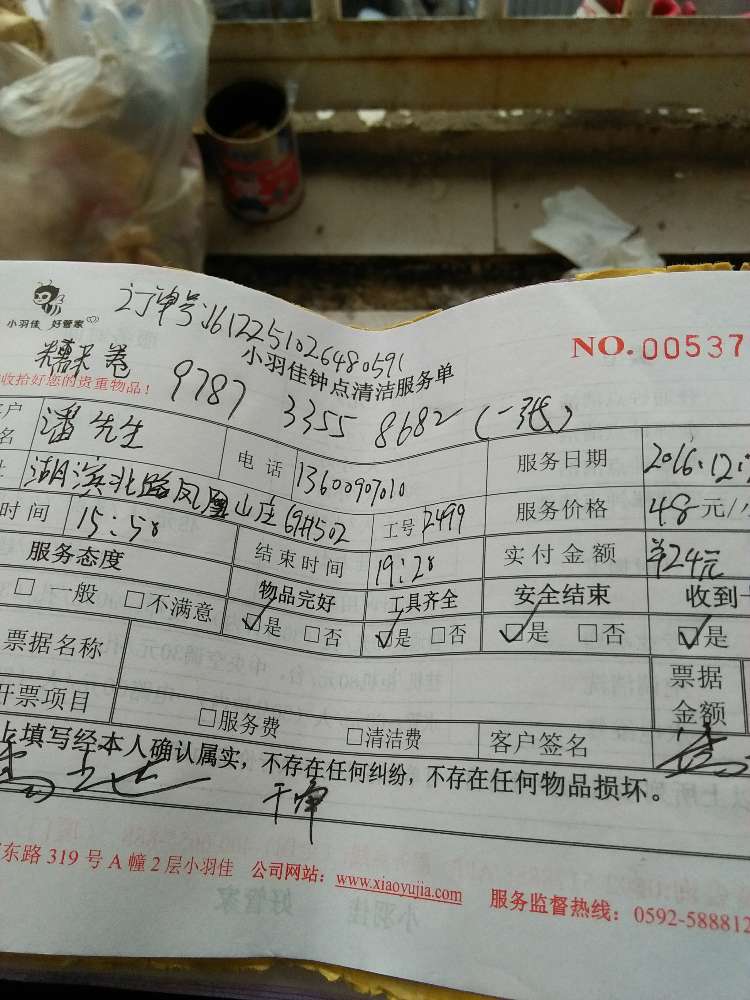 订单号:1612251026480591
小羽佳 好管家
小羽佳钟点清洁服务单
NO. 00537
糯米卷 9787 3355 8682 (一张)
收拾好您的贵重物品!
客户 名 潘先生 电话 13600907010 服务日期 2016.12.
址 湖滨北路凤凰山庄69#502 工号 2499 服务价格 48元/
时间 15:50 结束时间 19:20 实付金额 ¥24元
服务态度 物品完好 工具齐全 安全结束 收到
□一般 □不满意 ☑是 □否 ☑是 □否 ☑是 □否 ☑是
票据名称 票据金额
开票项目 □服务费 □清洁费 客户签名
上填写经本人确认属实,不存在任何纠纷,不存在任何物品损坏。
干净
东路319号A幢2层小羽佳 公司网站:www.xiaoyujia.com 服务监督热线:0592-588812